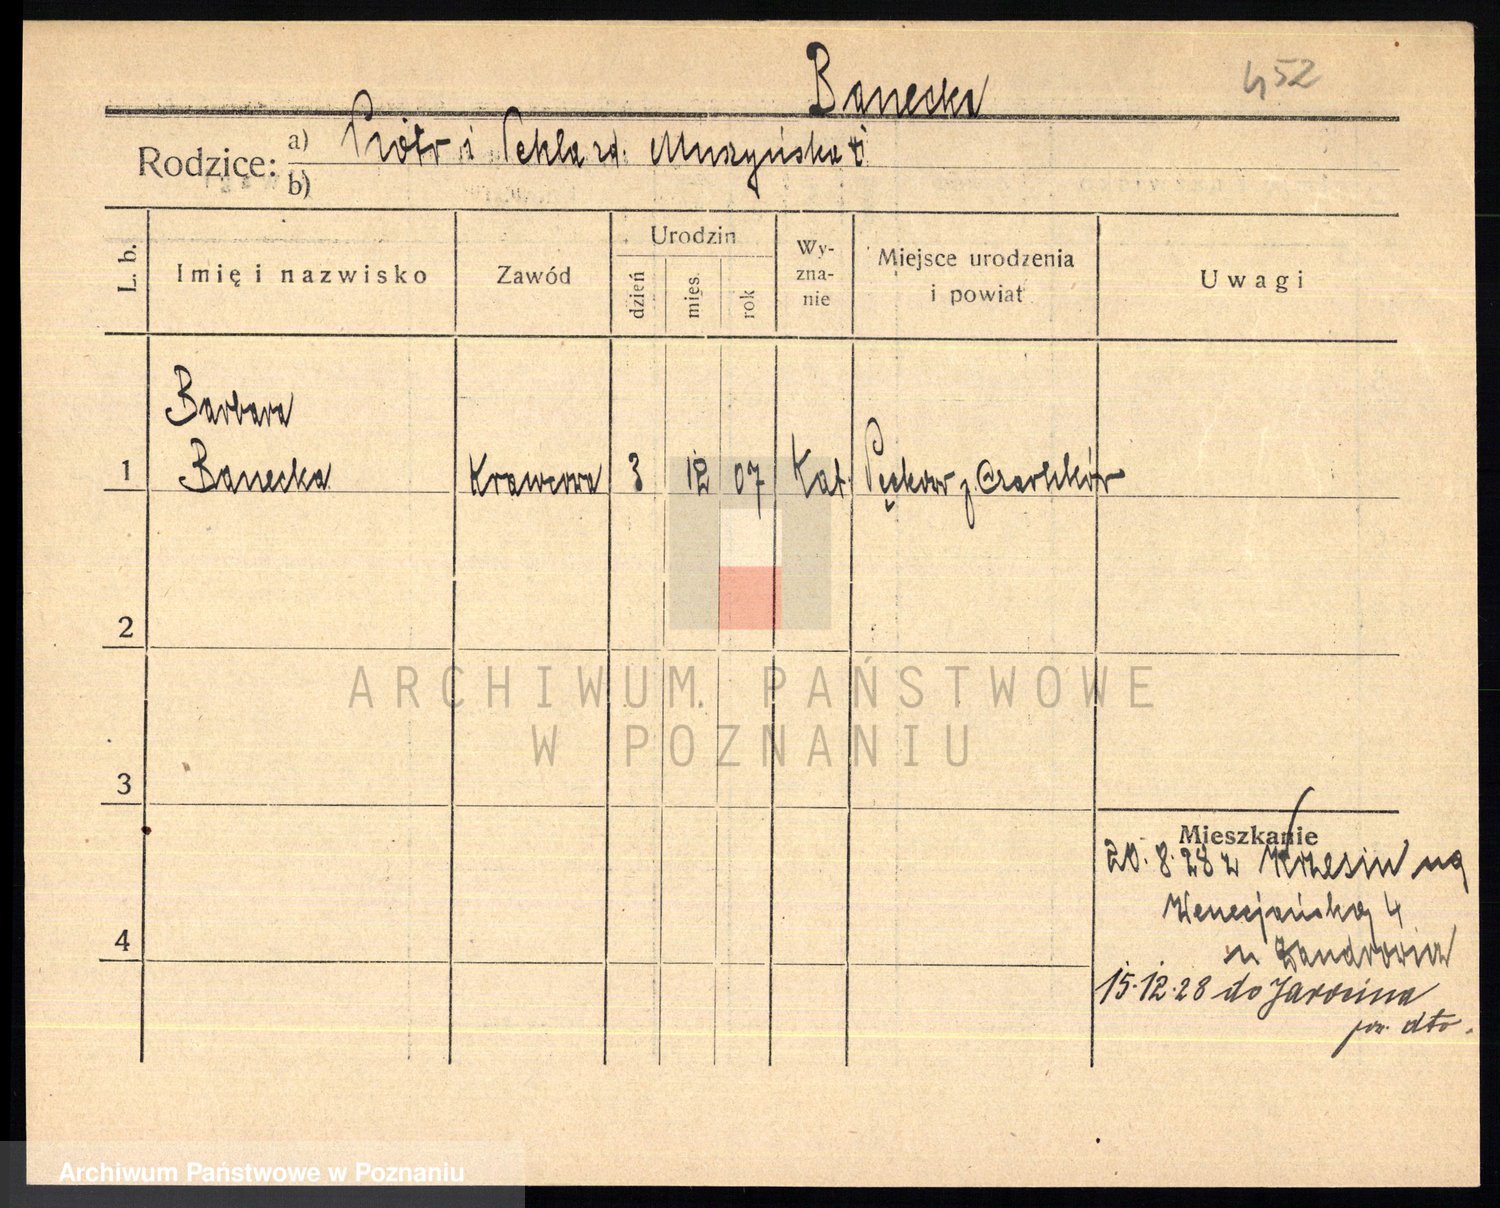 Banecka
452
Rodzice: a) Piotr i Tekla zd. Muszyńska
b)
L. b.
Imię i nazwisko
Zawód
Urodzin
dzień
mies.
rok
Wy-
zna-
nie
Miejsce urodzenia
i powiat
Uwagi
Barbara
1 Banecka Krawcowa 3 12 07 Kat. Czarnków
2
3
4
Mieszkanie
20.8.28 z Krzesin na
Wenecjańską 4
u
15.12.28 do Jarocina
pow. dto.
ARCHIWUM PAŃSTWOWE
W POZNANIU
Archiwum Państwowe w Poznaniu